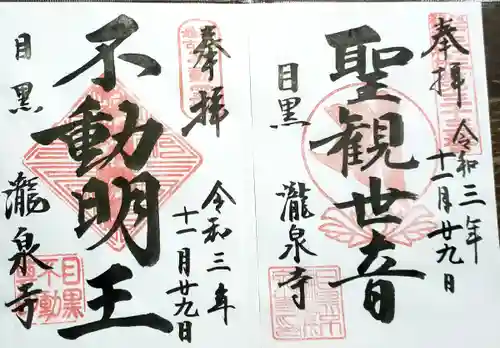 奉拝
令和三年
十一月廿九日
聖観世音
目黒
瀧泉寺
奉拝
令和三年
十一月廿九日
不動明王
目黒
瀧泉寺
目黒
不動